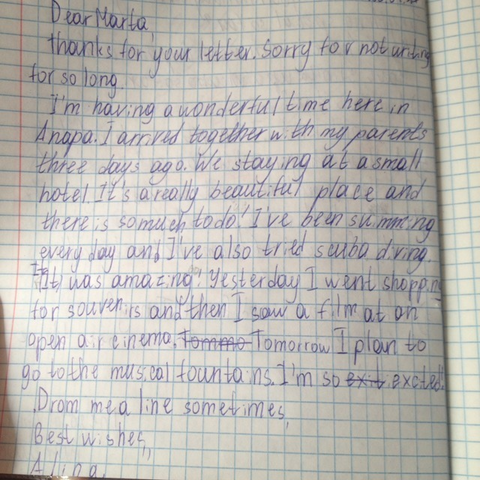 Dear Marta,
thanks for your letter. Sorry for not writing
for so long.
I'm having a wonderful time here in
Anapa. I arrived together with my parents
three days ago. We staying at a small
hotel. It's a really beautiful place and
there is so much to do! I've been summing
every day and I've also tried scuba diving.
It was amazing! Yesterday I went shopping
for souvenirs and then I saw a film at an
open air cinema. Tommo Tomorrow I plan to
go to the musical fountains. I'm so exit excited!
Drom me a line sometimes,
Best wishes,
Alina.